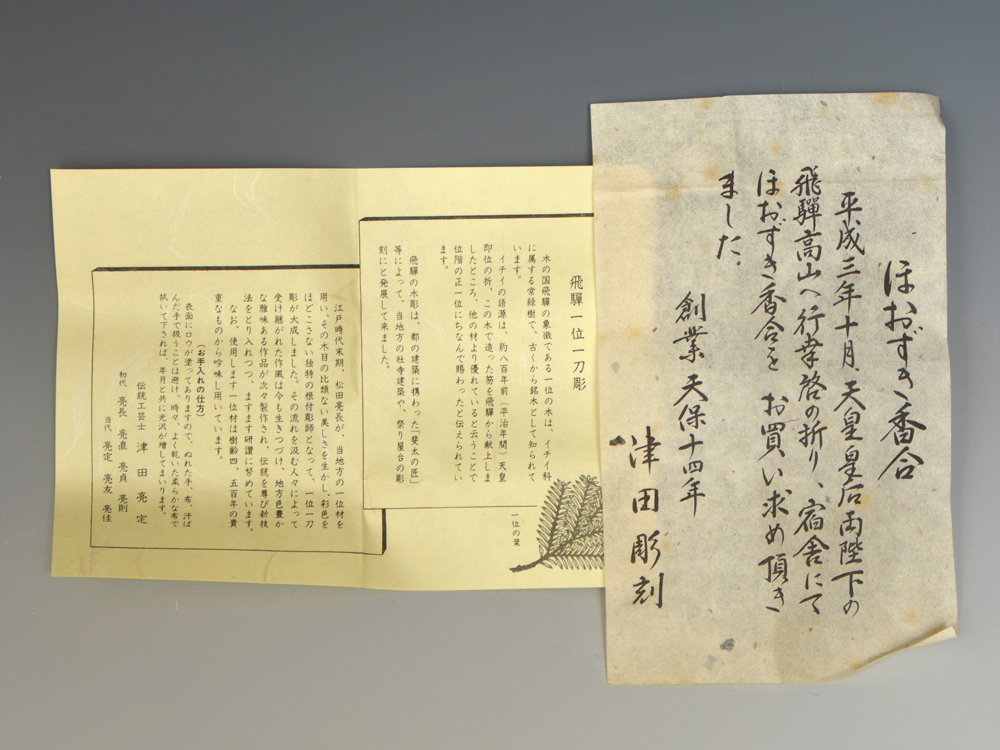 ほおずき香合
平成三年十月、天皇皇后両陛下の
飛騨高山へ行幸啓の折り、宿舎にて
ほおずき香合を お買い求め頂き
ました。
創業 天保十四年
津田彫刻
飛騨一位一刀彫
木の国飛騨の象徴である一位の木は、イチイ科
に属する常緑樹で、古くから銘木として知られて
います。
イチイの語源は、約八百年前(平治年間)天皇
即位の折、この木で造った笏を飛騨から献上しま
したところ、他の材より優れていると云うことで
位階の正一位にちなんで賜わったと伝えられてい
ます。
飛騨の木彫は、都の建築に携わった「斐太の匠」
等によって、当地方の社寺建築や、祭り屋台の彫
刻にと発展して来ました。
一位の葉
江戸時代末期、松田亮長が、当地方の一位材を
用い、その木目の比類ない美しさを生かし、彩色を
ほどこさない独特の根付彫師となって、一位一刀
彫が大成しました。その流れを汲む人々によって
受け継がれた作風は今も生きつづけ、地方色豊か
な雅味ある作品が次々製作され、伝統を尊び新技
法をとり入れつつ、ますます研讃に努めています。
なお、使用します一位材は樹齢四、五百年の貴
重なものから吟味し用いています。
(お手入れの仕方)
表面にロウが塗ってありますので、ぬれた手、布、汗ば
んだ手で扱うことは避け、時々、よく乾いた柔らかな布で
拭いて下されば、年月と共に光沢が増してまいります。
伝統工芸士 津田亮定
初代 亮長 亮直 亮貞 亮則
当代 亮定 亮友 亮佳